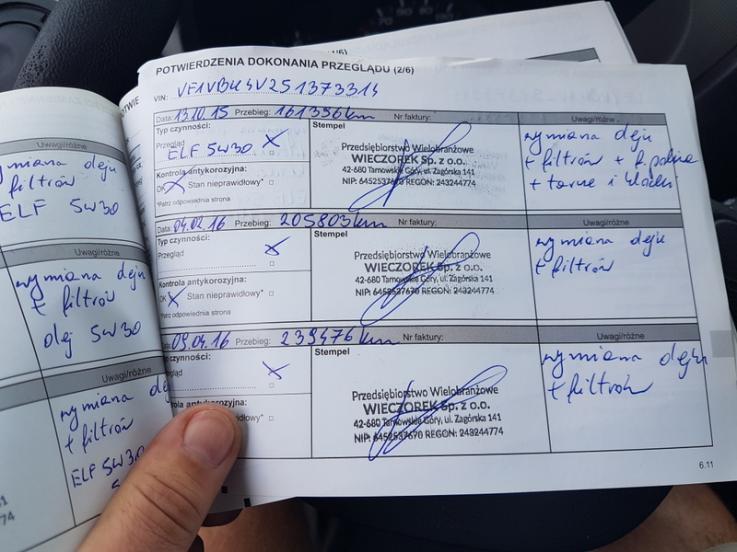 Uwagi/różne
wymiana oleju
filtrów
ELF 5W30
Uwagi/różne
wymiana oleju
+ filtrów
olej 5W30
Uwagi/różne
wymiana
+ filtrów
ELF 5W30
74
POTWIERDZENIA DOKONANIA PRZEGLĄDU (2/6)
VIN: VF1VBH4V251373314
Data: 13.10.15 Przebieg: 161356km Nr faktury: Uwagi/różne
Typ czynności:
Przegląd X
ELF 5W30
Kontrola antykorozyjna:
OK X Stan nieprawidłowy*
*Patrz odpowiednia strona
Stempel
Przedsiębiorstwo Wielobranżowe
WIECZOREK Sp. z o.o.
42-680 Tarnowskie Góry, ul. Zagórska 141
NIP: 6452537670 REGON: 243244774
wymiana oleju
+ filtrów + f. paliwa
+ tarcze i klocki
Data: 04.02.16 Przebieg: 205803km Nr faktury: Uwagi/różne
Typ czynności:
Przegląd X
Kontrola antykorozyjna:
OK X Stan nieprawidłowy*
*Patrz odpowiednia strona
Stempel
Przedsiębiorstwo Wielobranżowe
WIECZOREK Sp. z o.o.
42-680 Tarnowskie Góry, ul. Zagórska 141
NIP: 6452537670 REGON: 243244774
wymiana oleju
+ filtrów
Data: 09.04.16 Przebieg: 239476km Nr faktury: Uwagi/różne
czynności:
X
antykorozyjna:
nieprawidłowy*
strona
Stempel
Przedsiębiorstwo Wielobranżowe
WIECZOREK Sp. z o.o.
42-680 Tarnowskie Góry, ul. Zagórska 141
NIP: 6452537670 REGON: 243244774
wymiana oleju
+ filtrów
6.11